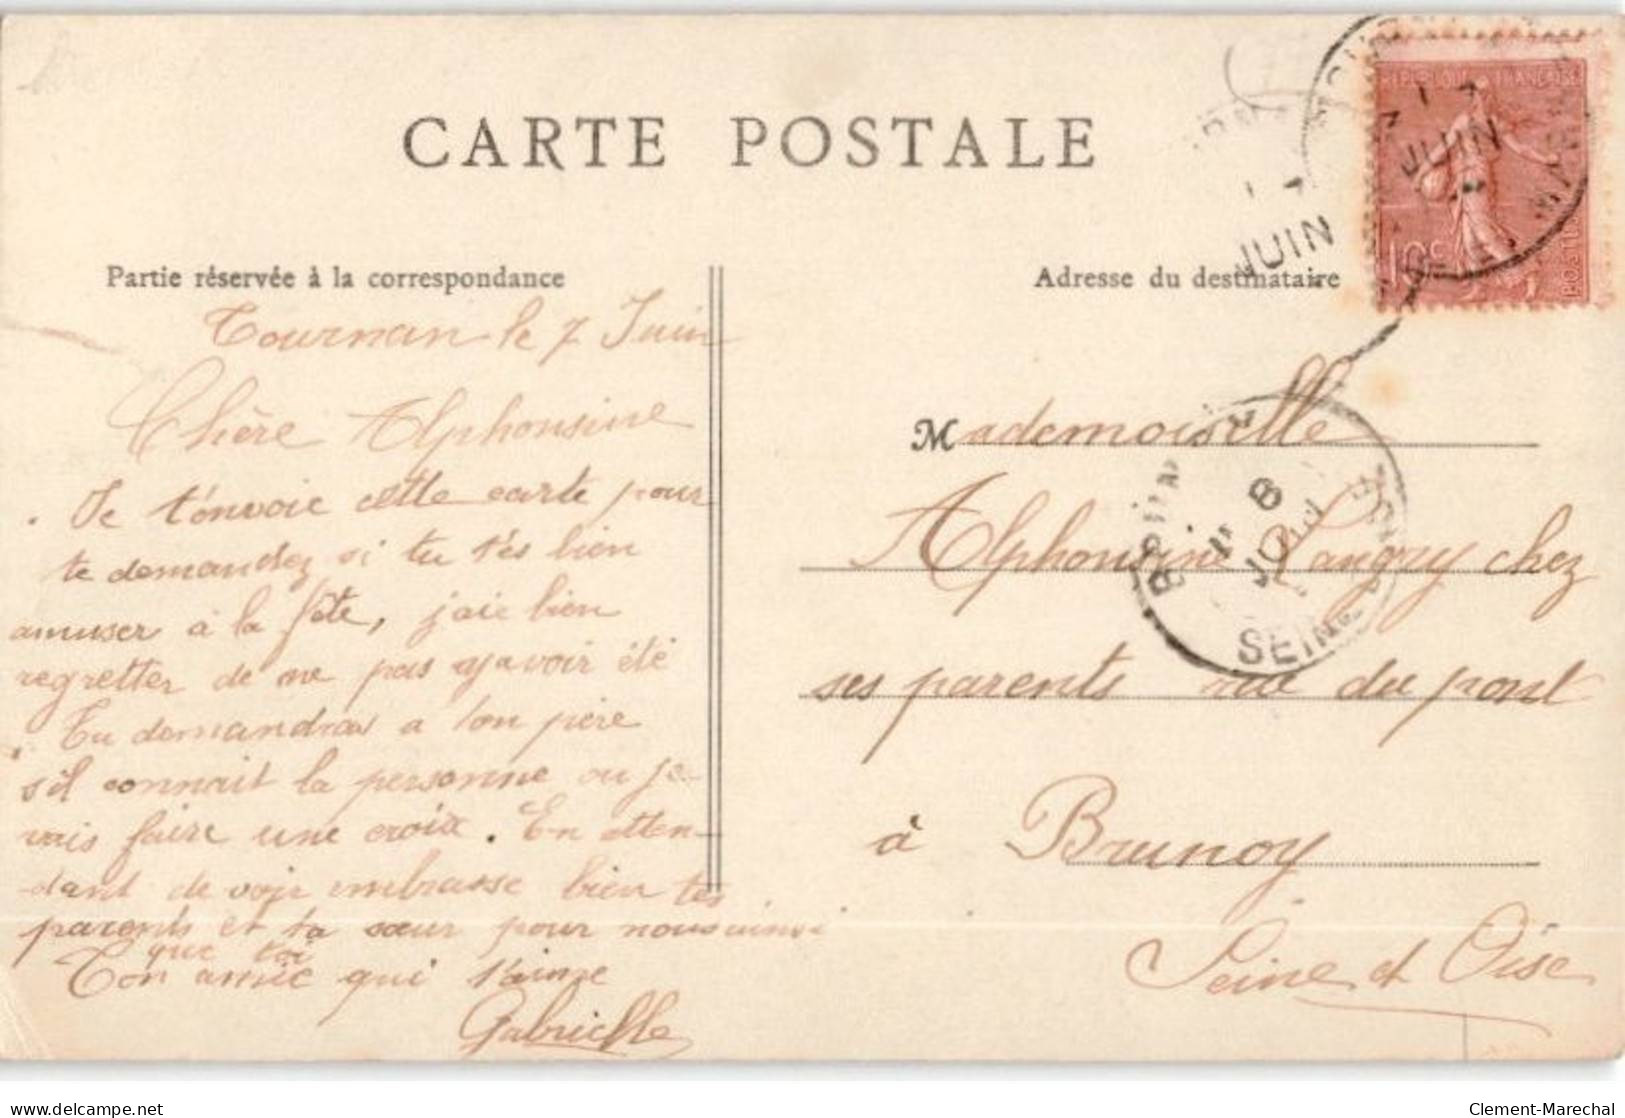 CARTE POSTALE
Partie réservée à la correspondance
Tournan le 7 Juin
Chère Alphonsine
Je t'envoie cette carte pour
te demandez si tu t'es bien
amuser à la fête, j'aie bien
regretter de ne pas y avoir été
Tu demandras a ton père
s'il connait la personne ou je
vais faire une croix. En atten-
dant de voir embrasse bien tes
parents et ta sœur pour nous ainsi
que toi
Ton amie qui t'aime
Gabrielle
Adresse du destinataire
Mademoiselle
Alphonsine Langry chez
ses parents rue du pont
à Brunoy
Seine et Oise
REPUBLIQUE FRANÇAISE
10c
POSTES
JUIN
JUIN
8
JUIN
SEINE
delcampe.net
Clement-Marechal